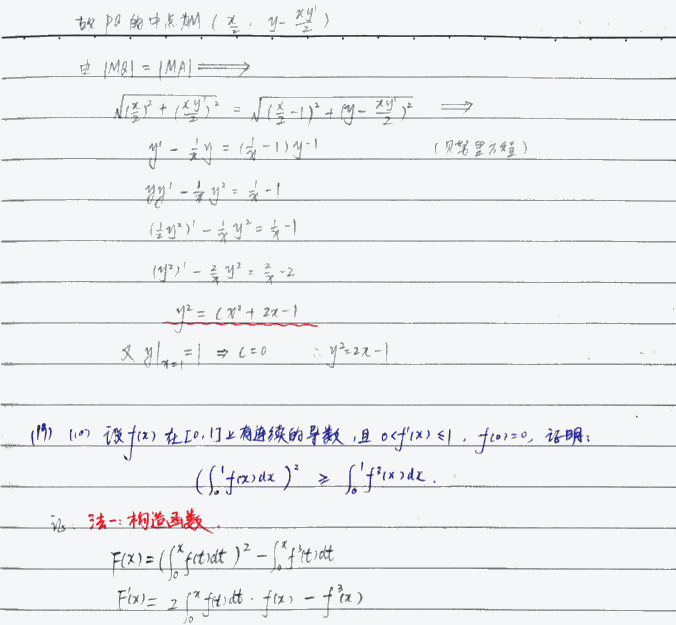 故PQ的中点为M(x/2, y - xy'/2)
由 |MQ| = |MA| ⟹
√((x/2)² + (xy'/2)²) = √((x/2 - 1)² + (y - xy'/2)²) ⟹
y' - 1/x y = (1/x - 1) y⁻¹ (贝努里方程)
yy' - 1/x y² = 1/x - 1
(1/2 y²)' - 1/x y² = 1/x - 1
(y²)' - 2/x y² = 2/x - 2
y² = Cx² + 2x - 1
又 y|x=1 = 1 ⇒ C=0 ∴ y²=2x-1
(19) (10) 设f(x)在[0,1]上有连续的导数,且 0<f'(x)≤1, f(0)=0, 证明:
(∫₀¹f(x)dx)² ≥ ∫₀¹f³(x)dx.
证: 法一:构造函数.
F(x) = (∫₀ˣf(t)dt)² - ∫₀ˣf³(t)dt
F'(x) = 2∫₀ˣf(t)dt · f(x) - f³(x)